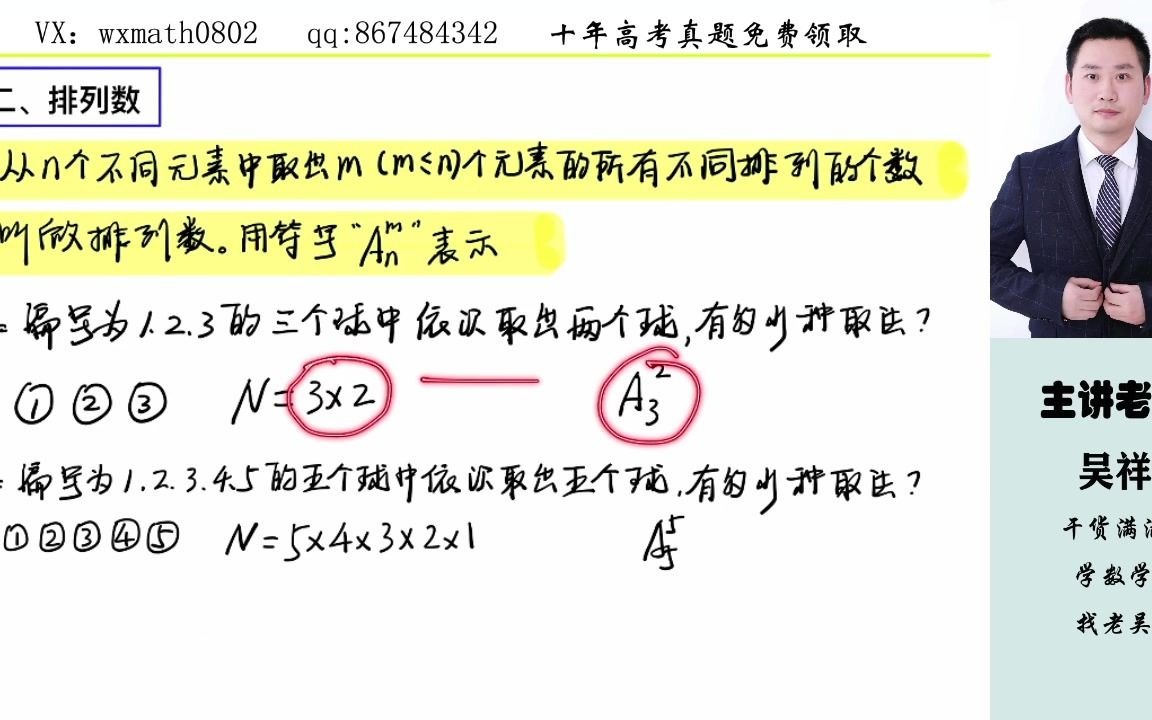 VX：wxmath0802 qq:867484342 十年高考真题免费领取
二、排列数
从n个不同元素中取出m（m≤n)个元素的所有不同排列的个数
叫做排列数。用符号“Aₙᵐ”表示
编号为1.2.3的三个球中依次取出两个球,有多少种取法？
① ② ③ N=3×2 A₃²
编号为1.2.3.4.5的五个球中依次取出五个球,有多少种取法？
①②③④⑤ N=5×4×3×2×1 A₅⁵
主讲老
吴祥
干货满
学数学
找老吴